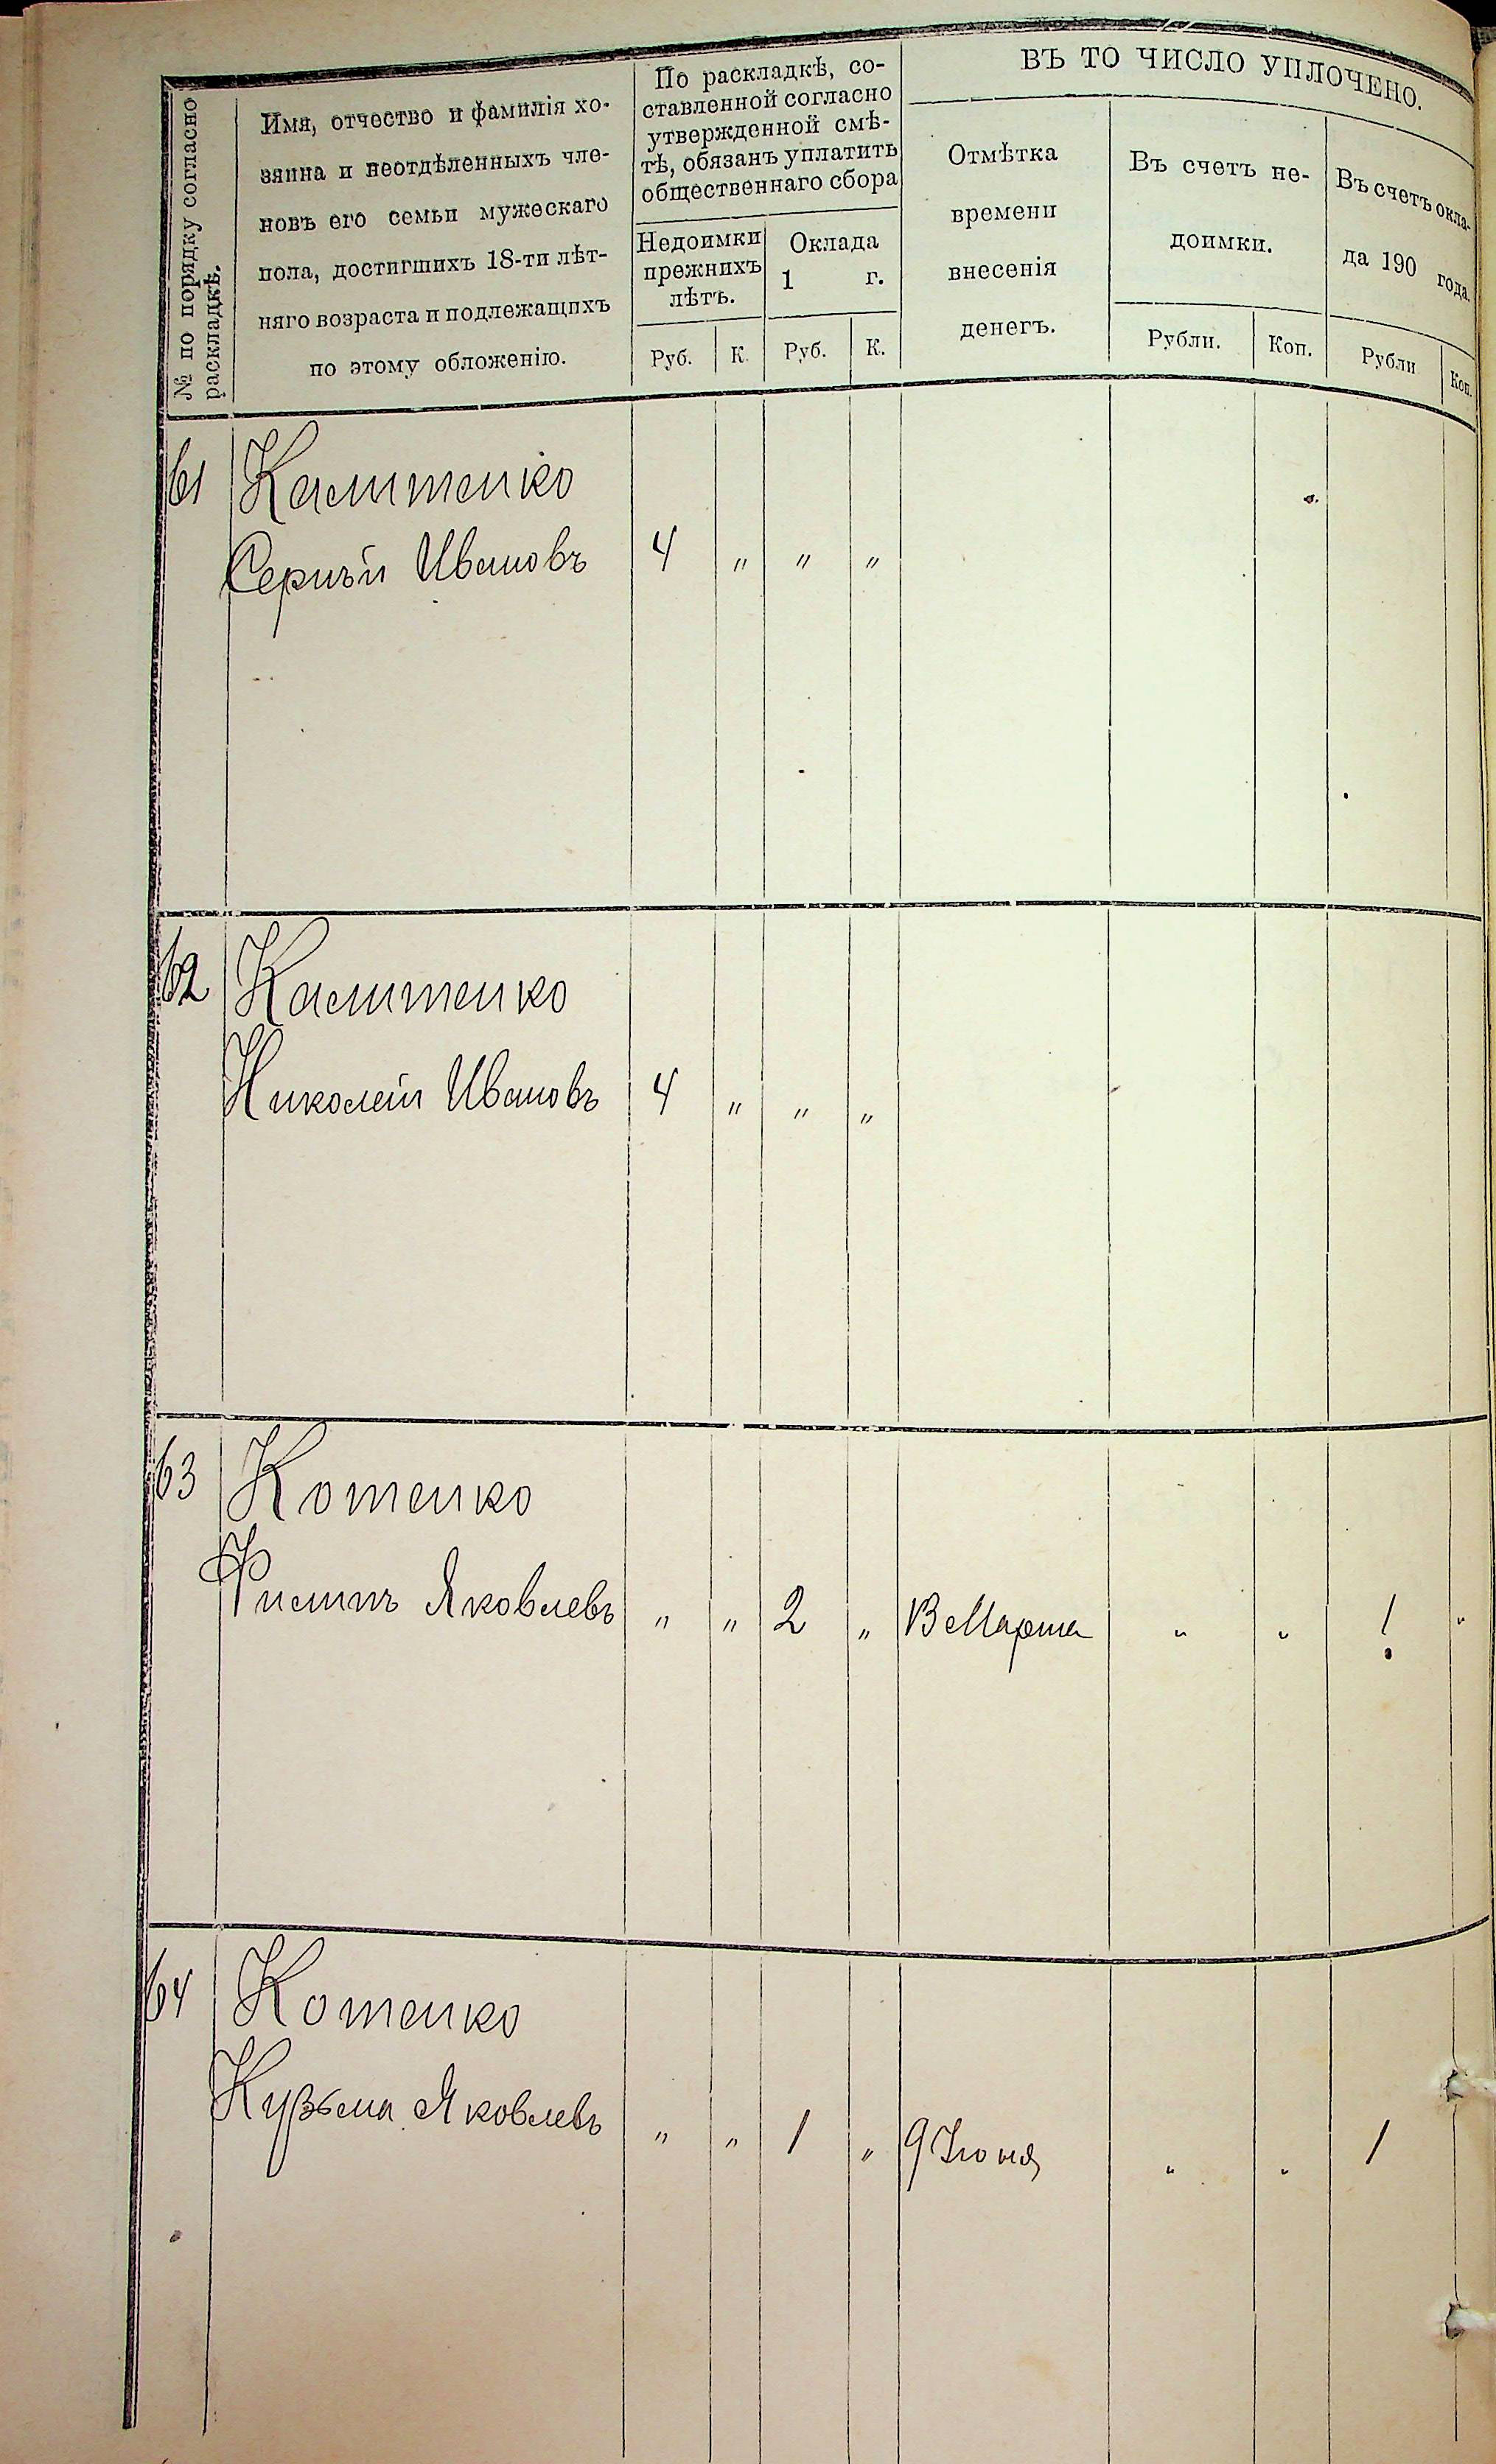 № по порядку согласно
раскладкѣ.
Имя, отчество и фамилія хо-
зяина и неотдѣленныхъ чле-
новъ его семьи мужескаго
пола, достигшихъ 18-ти лѣт-
няго возраста и подлежащихъ
по этому обложенію.
По раскладкѣ, со-
ставленной согласно
утвержденной смѣ-
тѣ, обязанъ уплатить
общественнаго сбора
Недоимки
прежнихъ
лѣтъ.
Оклада
1 г.
Руб. К. Руб. К.
ВЪ ТО ЧИСЛО УПЛОЧЕНО.
Отмѣтка
времени
внесенія
денегъ.
Въ счетъ не-
доимки.
Рубли. Коп.
Въ счетъ окла-
да 190 года.
Рубли Коп.
61 Калитенко
Сергѣй Ивановъ 4 " " "
62 Калитенко
Николай Ивановъ 4 " " "
63 Котенко
Филипъ Яковлевъ " " 2 " Марта " " 1 "
64 Котенко
Кузьма Яковлевъ " " 1 " 9 Іюня " " 1